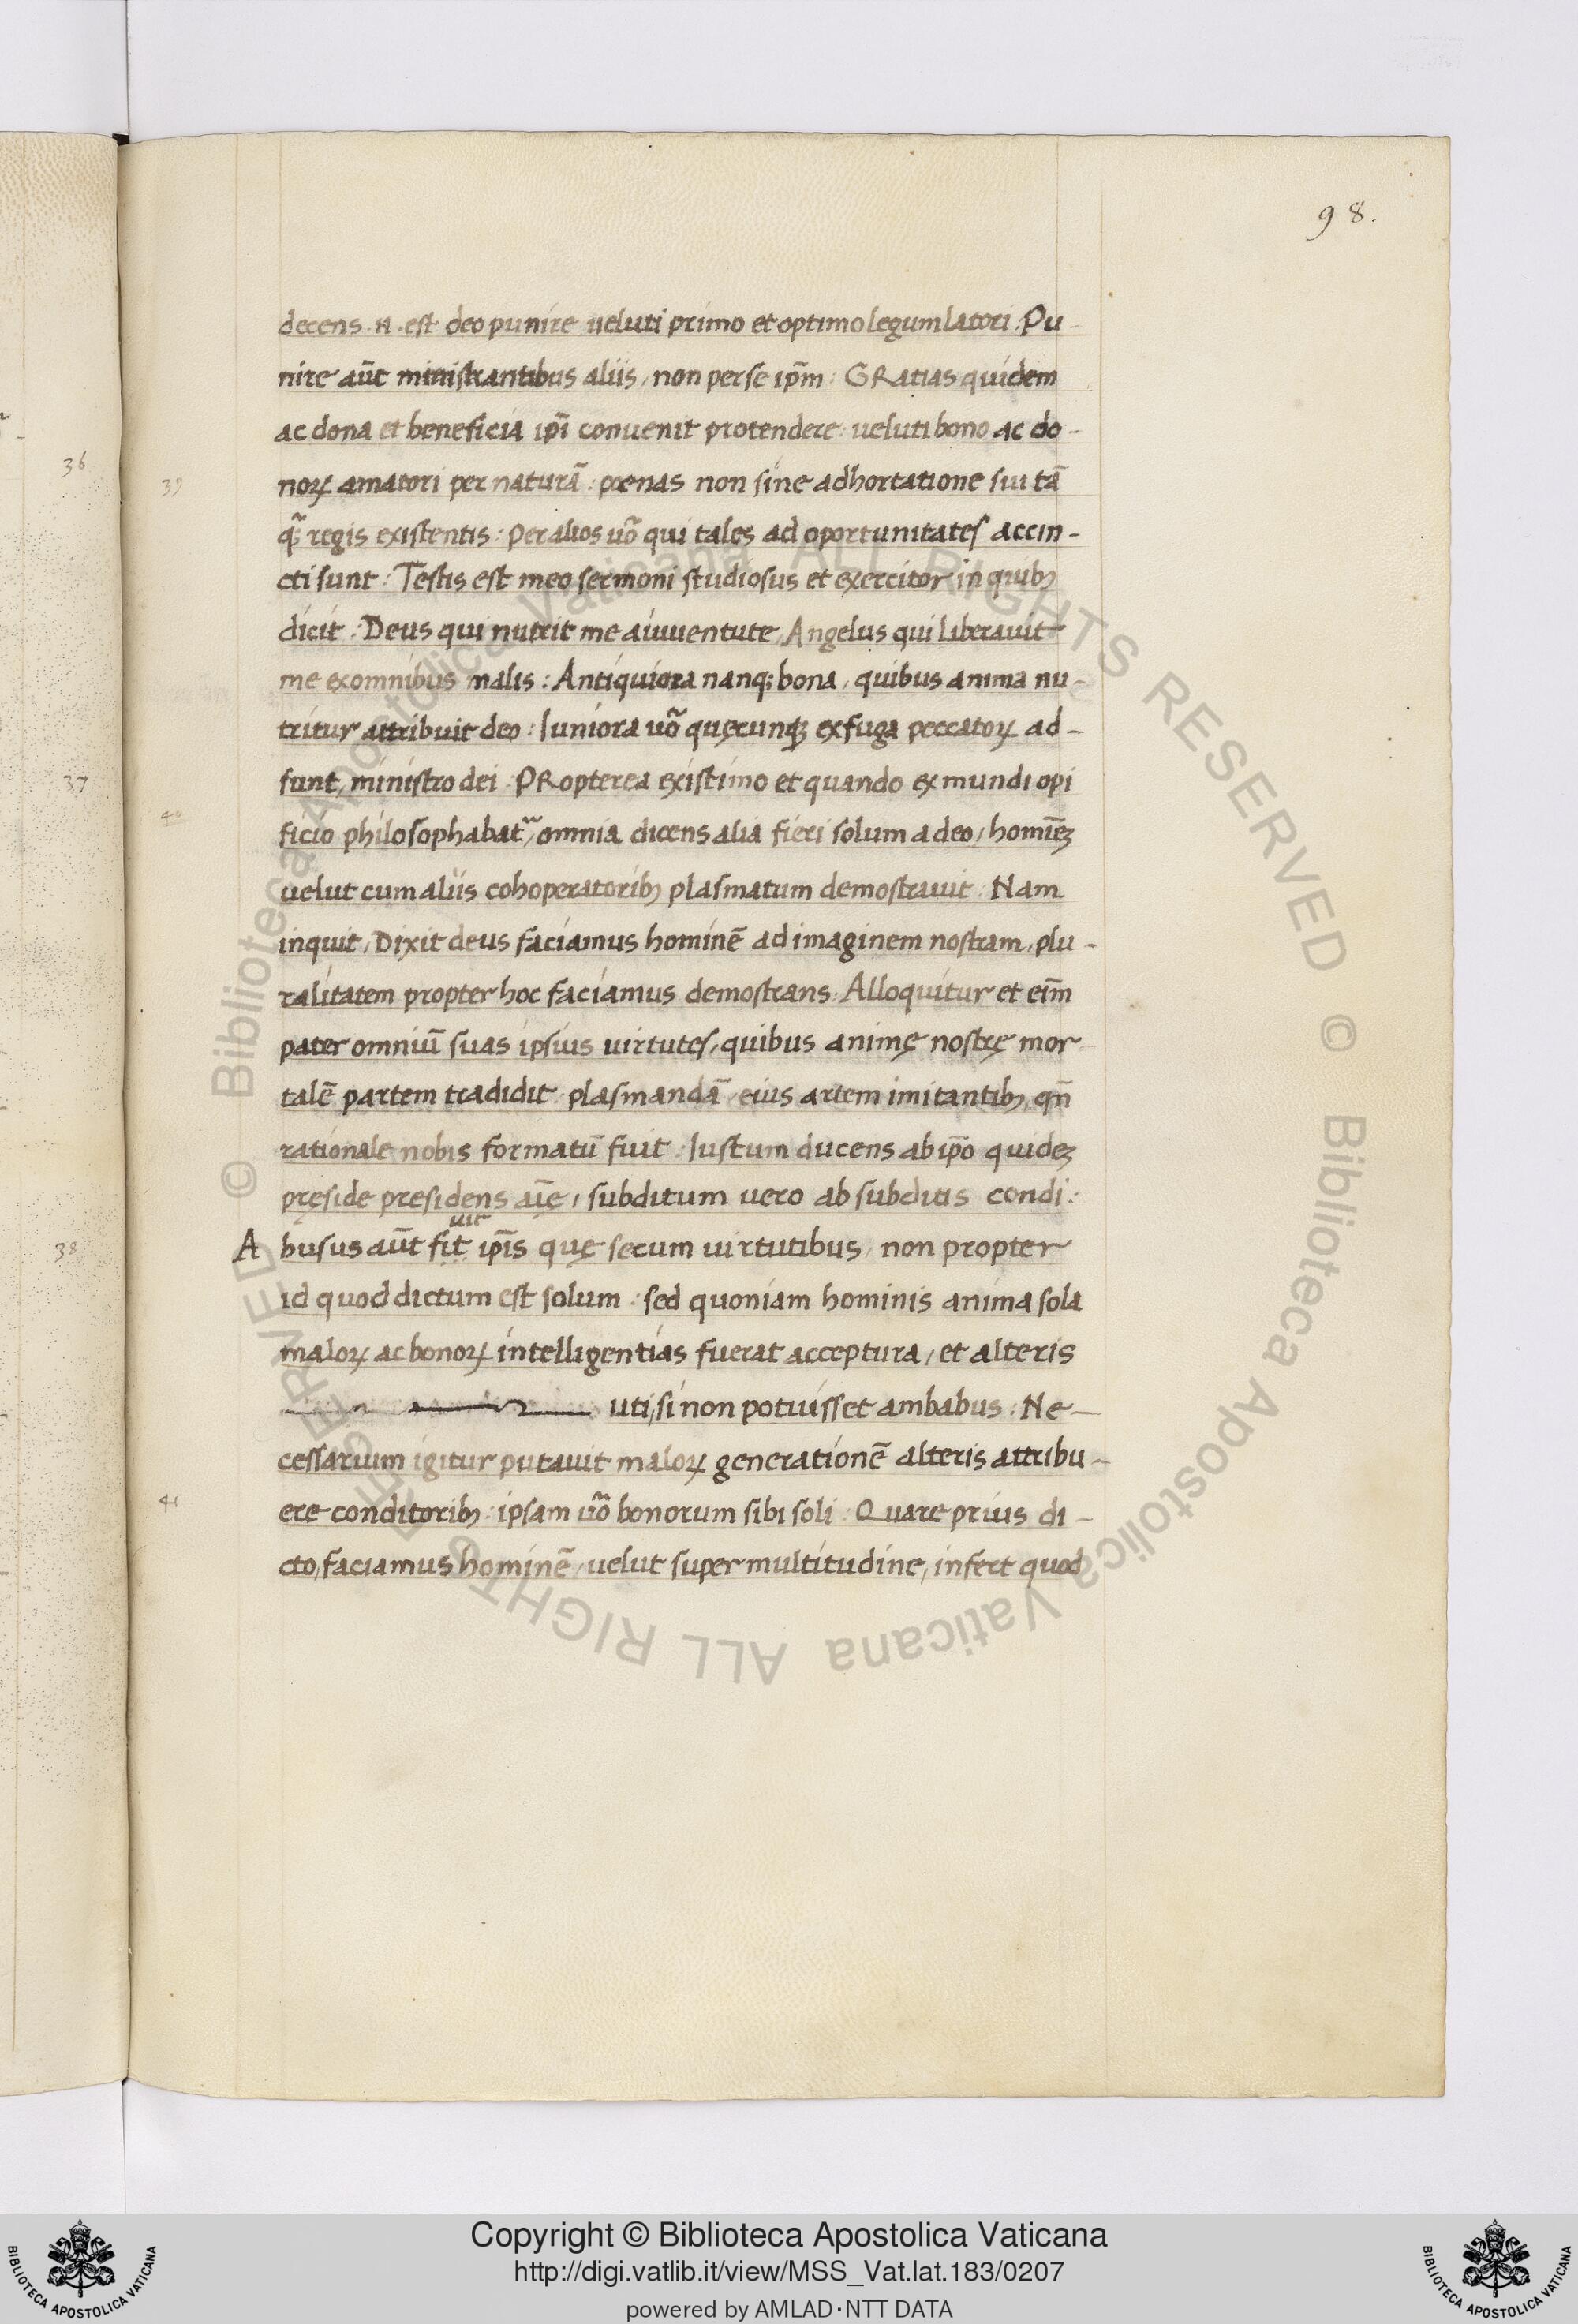 98.
decens .n. est deo punire ueluti primo et optimo legumlatori : Pu-
nire aūt ministrantibus aliis, non per se ip̄m : GRatias quidem
ac dona et beneficia ip̄i conuenit protendere : ueluti bono ac do-
noꝝ amatori per naturā : poenas non sine adhortatione sui tā
regis existentis : per alios uō qui tales ad oportunitates accin-
cti sunt : Testis est meo sermoni studiosus et exercitor in quibꝫ
dicit : Deus qui nutrit me a iuuentute, Angelus qui liberauit
me ex omnibus malis : Antiquiora nanq; bona, quibus anima nu-
tritur attribuit deo : Iuniora uō quęcunqꝫ ex fuga peccatoꝝ ad-
sunt, ministro dei : PRopterea existimo et quando ex mundi opi
ficio philosophabat᷑, omnia dicens alia fieri solum a deo, homīeꝫ
uelut cum aliis cohoperatoribꝫ plasmatum demostrauit : Nam
inquit, Dixit deus faciamus hominē ad imaginem nostram, plu-
ralitatem propter hoc faciamus demostrans : Alloquitur et eīm
pater omniū suas ipsius uirtutes, quibus animę nostrę mor-
talē partem tradidit : plasmandā, eius artem imitantibꝫ, qn̄
rationale nobis formatū fuit : Iustum ducens ab ip̄o quideꝫ
pręside presidens aīę, subditum uero ab subditis condi :
uit
39
40
A busus aūt fit ip̄is quę secum uirtutibus, non propter
id quod dictum est solum : sed quoniam hominis anima sola
maloꝝ ac bonoꝝ intelligentias fuerat acceptura, et alteris
uti, si non potuisset ambabus : Ne-
cessarium igitur putauit maloꝝ generationē alteris attribu-
41 ere conditoribꝫ : ipsam uō bonorum sibi soli : Quare prius di-
cto, faciamus hominē, uelut super multitudine, infert quod
36
37
38
© Biblioteca Apostolica Vaticana ALL RIGHTS RESERVED © Biblioteca Apostolica Vaticana ALL RIGHTS RESERVED
Copyright © Biblioteca Apostolica Vaticana
http://digi.vatlib.it/view/MSS_Vat.lat.183/0207
powered by AMLAD·NTT DATA
BIBLIOTECA APOSTOLICA VATICANA
BIBLIOTECA APOSTOLICA VATICANA